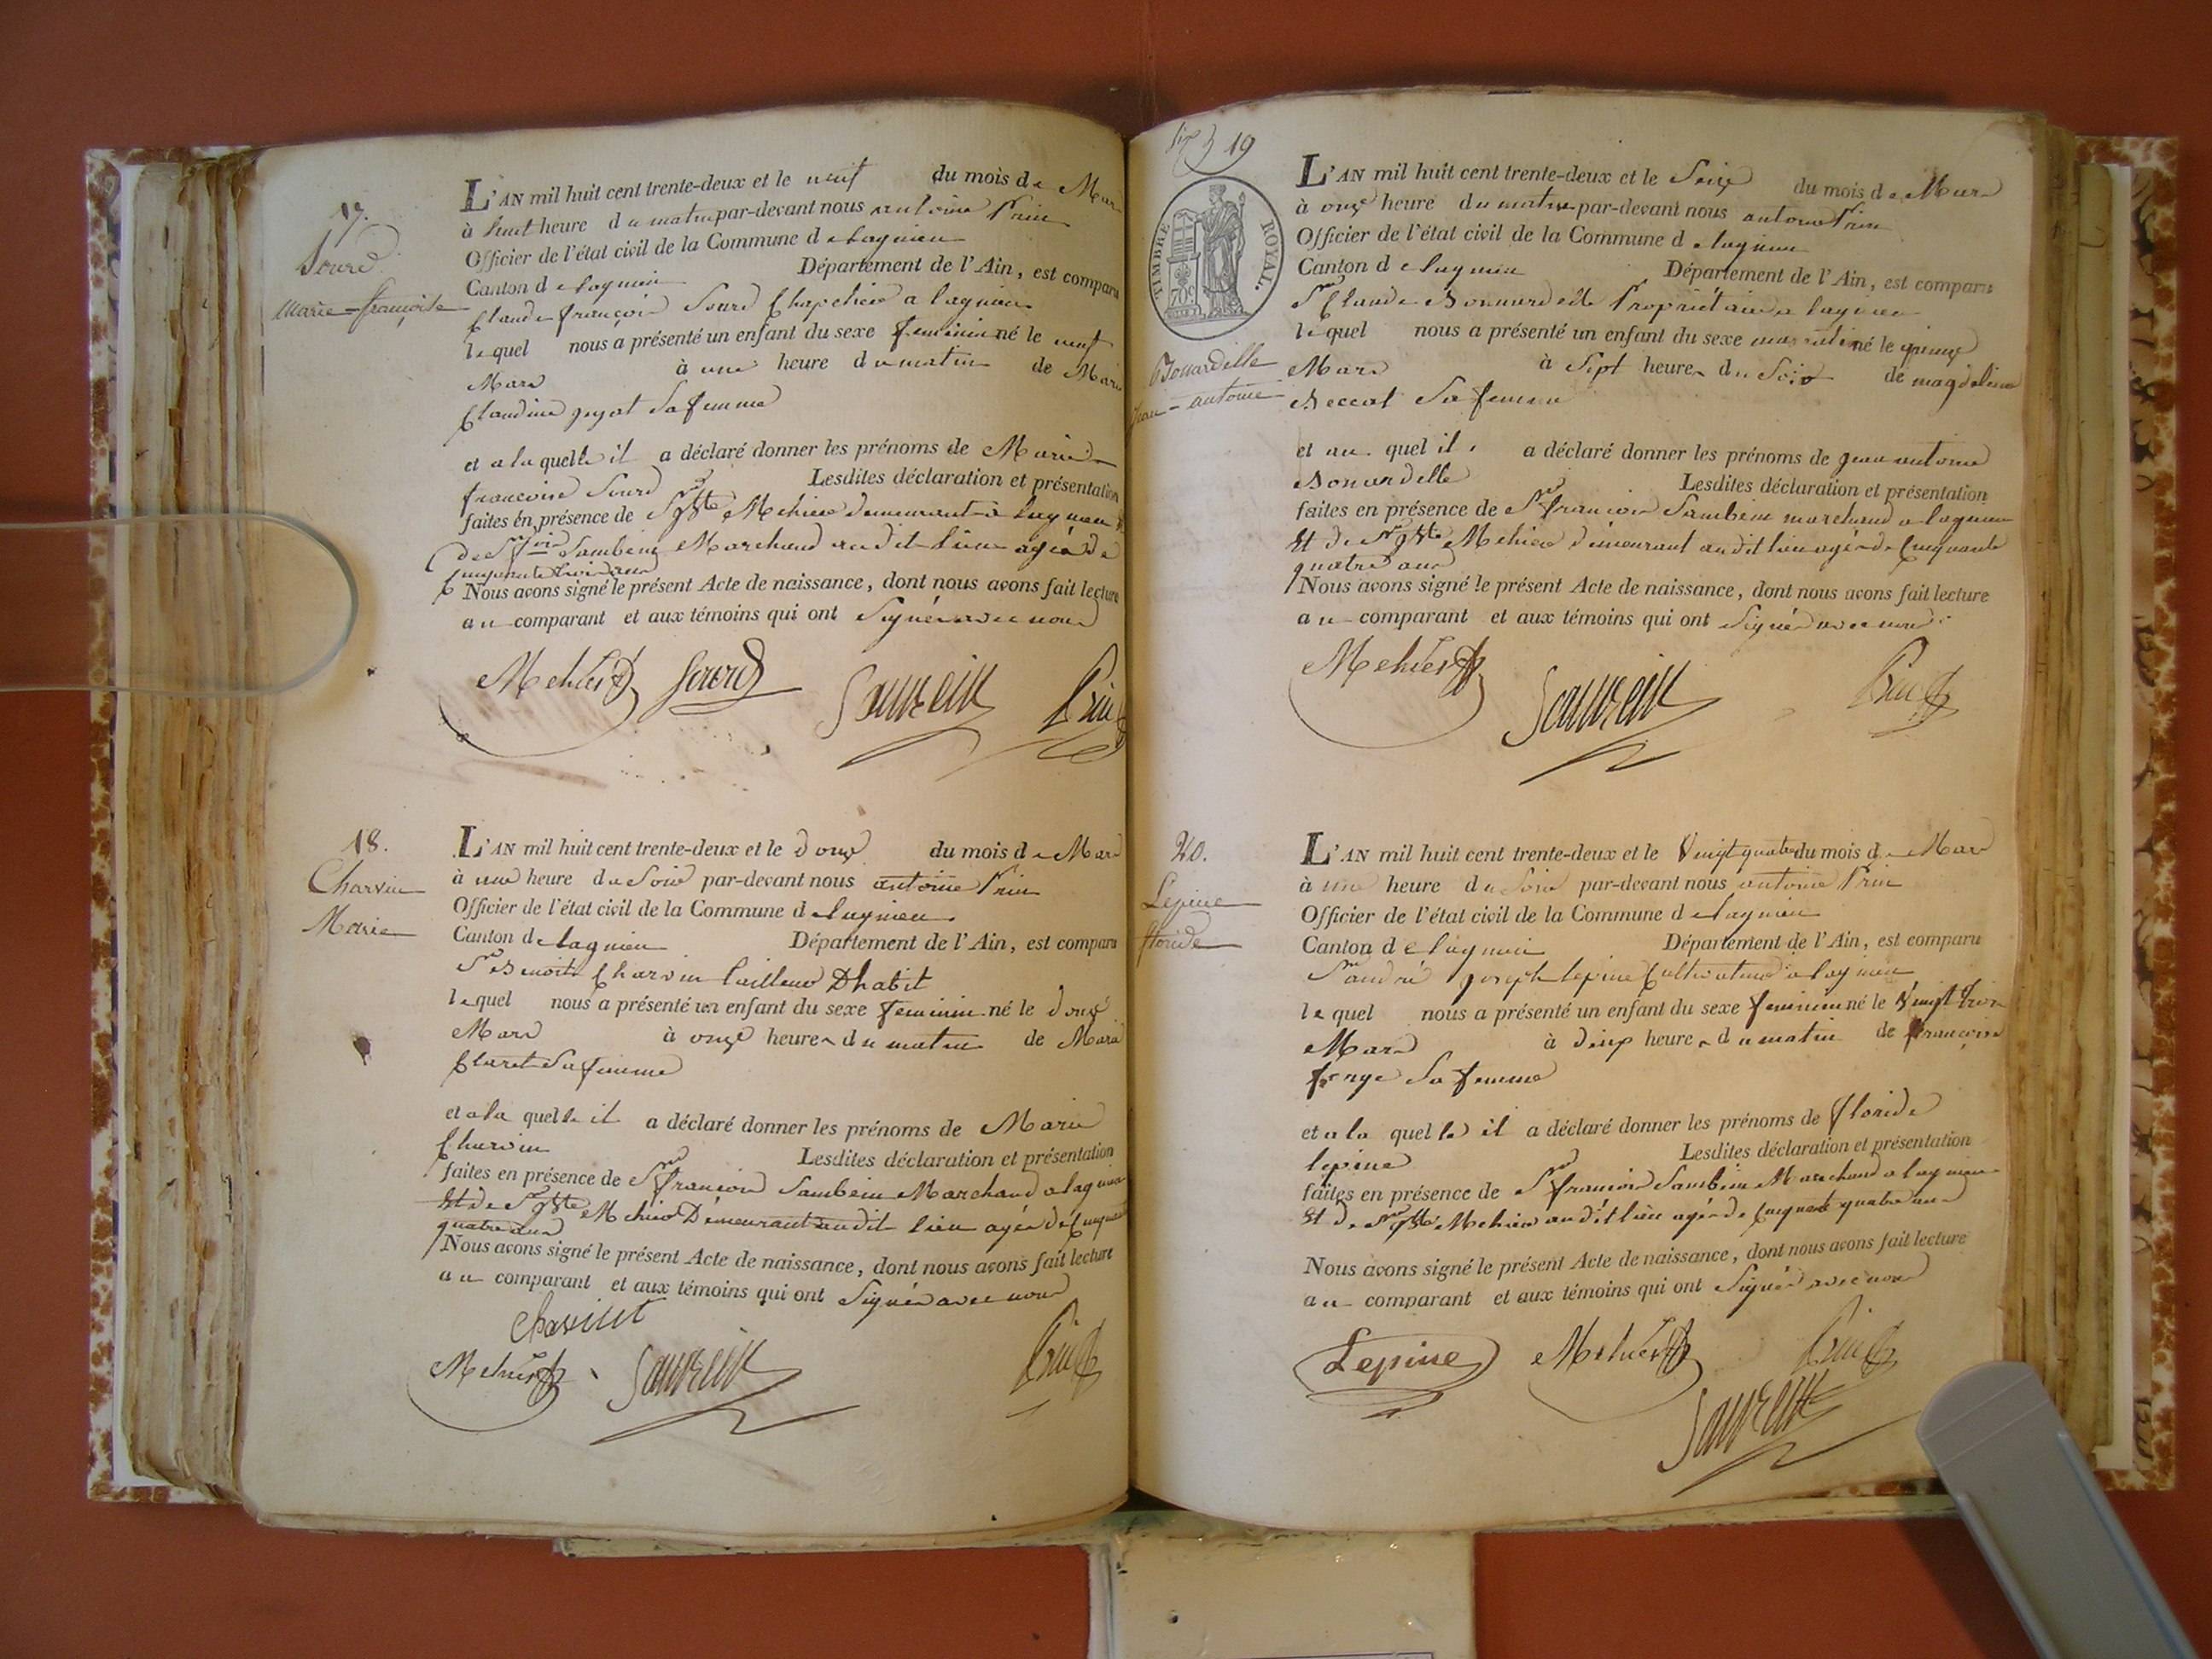 17.
Sourd
Marie-françoise
L'AN mil huit cent trente-deux et le neuf du mois de Mars
à huit heure du matin par-devant nous antoine Prin
Officier de l'état civil de la Commune de lagnieu
Canton de lagnieu Département de l'Ain, est comparu
Claude françois Sourd Chapelier a lagnieu
lequel nous a présenté un enfant du sexe feminin né le neuf
Mars à une heure du matin de Marie
Claudine sa femme
et a laquelle il a déclaré donner les prénoms de Marie
francoise Sourd Lesdites déclaration et présentation
faites en présence de Sr Jn Bte Mehier demeurant à lagnieu &
de Sr fois Sambein Marchand audit lieu agés de
Cinquante trois ans
Nous avons signé le présent Acte de naissance, dont nous avons fait lecture
au comparant et aux témoins qui ont Signés avec nous
Mehier Sourd Sambein Prin
18.
Charvin
Marie
L'AN mil huit cent trente-deux et le douze du mois de Mars
à une heure du Soir par-devant nous antoine Prin
Officier de l'état civil de la Commune de lagnieu
Canton de lagnieu Département de l'Ain, est comparu
Sr Benoit Charvin tailleur D'habit
lequel nous a présenté un enfant du sexe feminin né le douze
Mars à onze heures du matin de Marie
Claret Sa femme
et a la quelle il a déclaré donner les prénoms de Marie
Charvin Lesdites déclaration et présentation
faites en présence de Sr francois Sambein Marchand a lagnieu
Et de Sr Jn Bte Mehier Demeurant audit lieu agés de Cinquante
quatre ans
Nous avons signé le présent Acte de naissance, dont nous avons fait lecture
au comparant et aux témoins qui ont Signés avec nous
Mehier Sambein Prin
19
TIMBRE ROYAL.
70c
Bonardelle
Jean-antoine
L'AN mil huit cent trente-deux et le Seize du mois de Mars
à onze heure du matin par-devant nous antoine Prin
Officier de l'état civil de la Commune de lagnieu
Canton de lagnieu Département de l'Ain, est comparu
Sr Claude Bonnardelle Propriétaire a lagnieu
lequel nous a présenté un enfant du sexe masculin né le quinze
Mars à Sept heures du Soir de magdeleine
Beccat Sa femme
et au quel il a déclaré donner les prénoms de jean antoine
Bonardelle Lesdites déclaration et présentation
faites en présence de Sr francois Sambein marchand a lagnieu
Et de Sr Jn Bte Mehier demeurant audit lieu agés de Cinquante
quatre ans
Nous avons signé le présent Acte de naissance, dont nous avons fait lecture
au comparant et aux témoins qui ont Signés avec nous.
Mehier Sambein Prin
20.
Lepine
floride
L'AN mil huit cent trente-deux et le Vingt quatre du mois de Mars
à une heure du Soir par-devant nous antoine Prin
Officier de l'état civil de la Commune de lagnieu
Canton de lagnieu Département de l'Ain, est comparu
Sr andré joseph lepine Cultivateur a lagnieu
lequel nous a présenté un enfant du sexe feminin né le Vingt trois
Mars à dix heures du matin de françoise
Sa femme
et a la quelle il a déclaré donner les prénoms de floride
lepine Lesdites déclaration et présentation
faites en présence de Sr francois Sambein Marchand a lagnieu
Et de Sr Jn Bte Mehier audit lieu agés de Cinquante quatre ans
Nous avons signé le présent Acte de naissance, dont nous avons fait lecture
au comparant et aux témoins qui ont Signés avec nous
Lepine Mehier Prin
Sambein